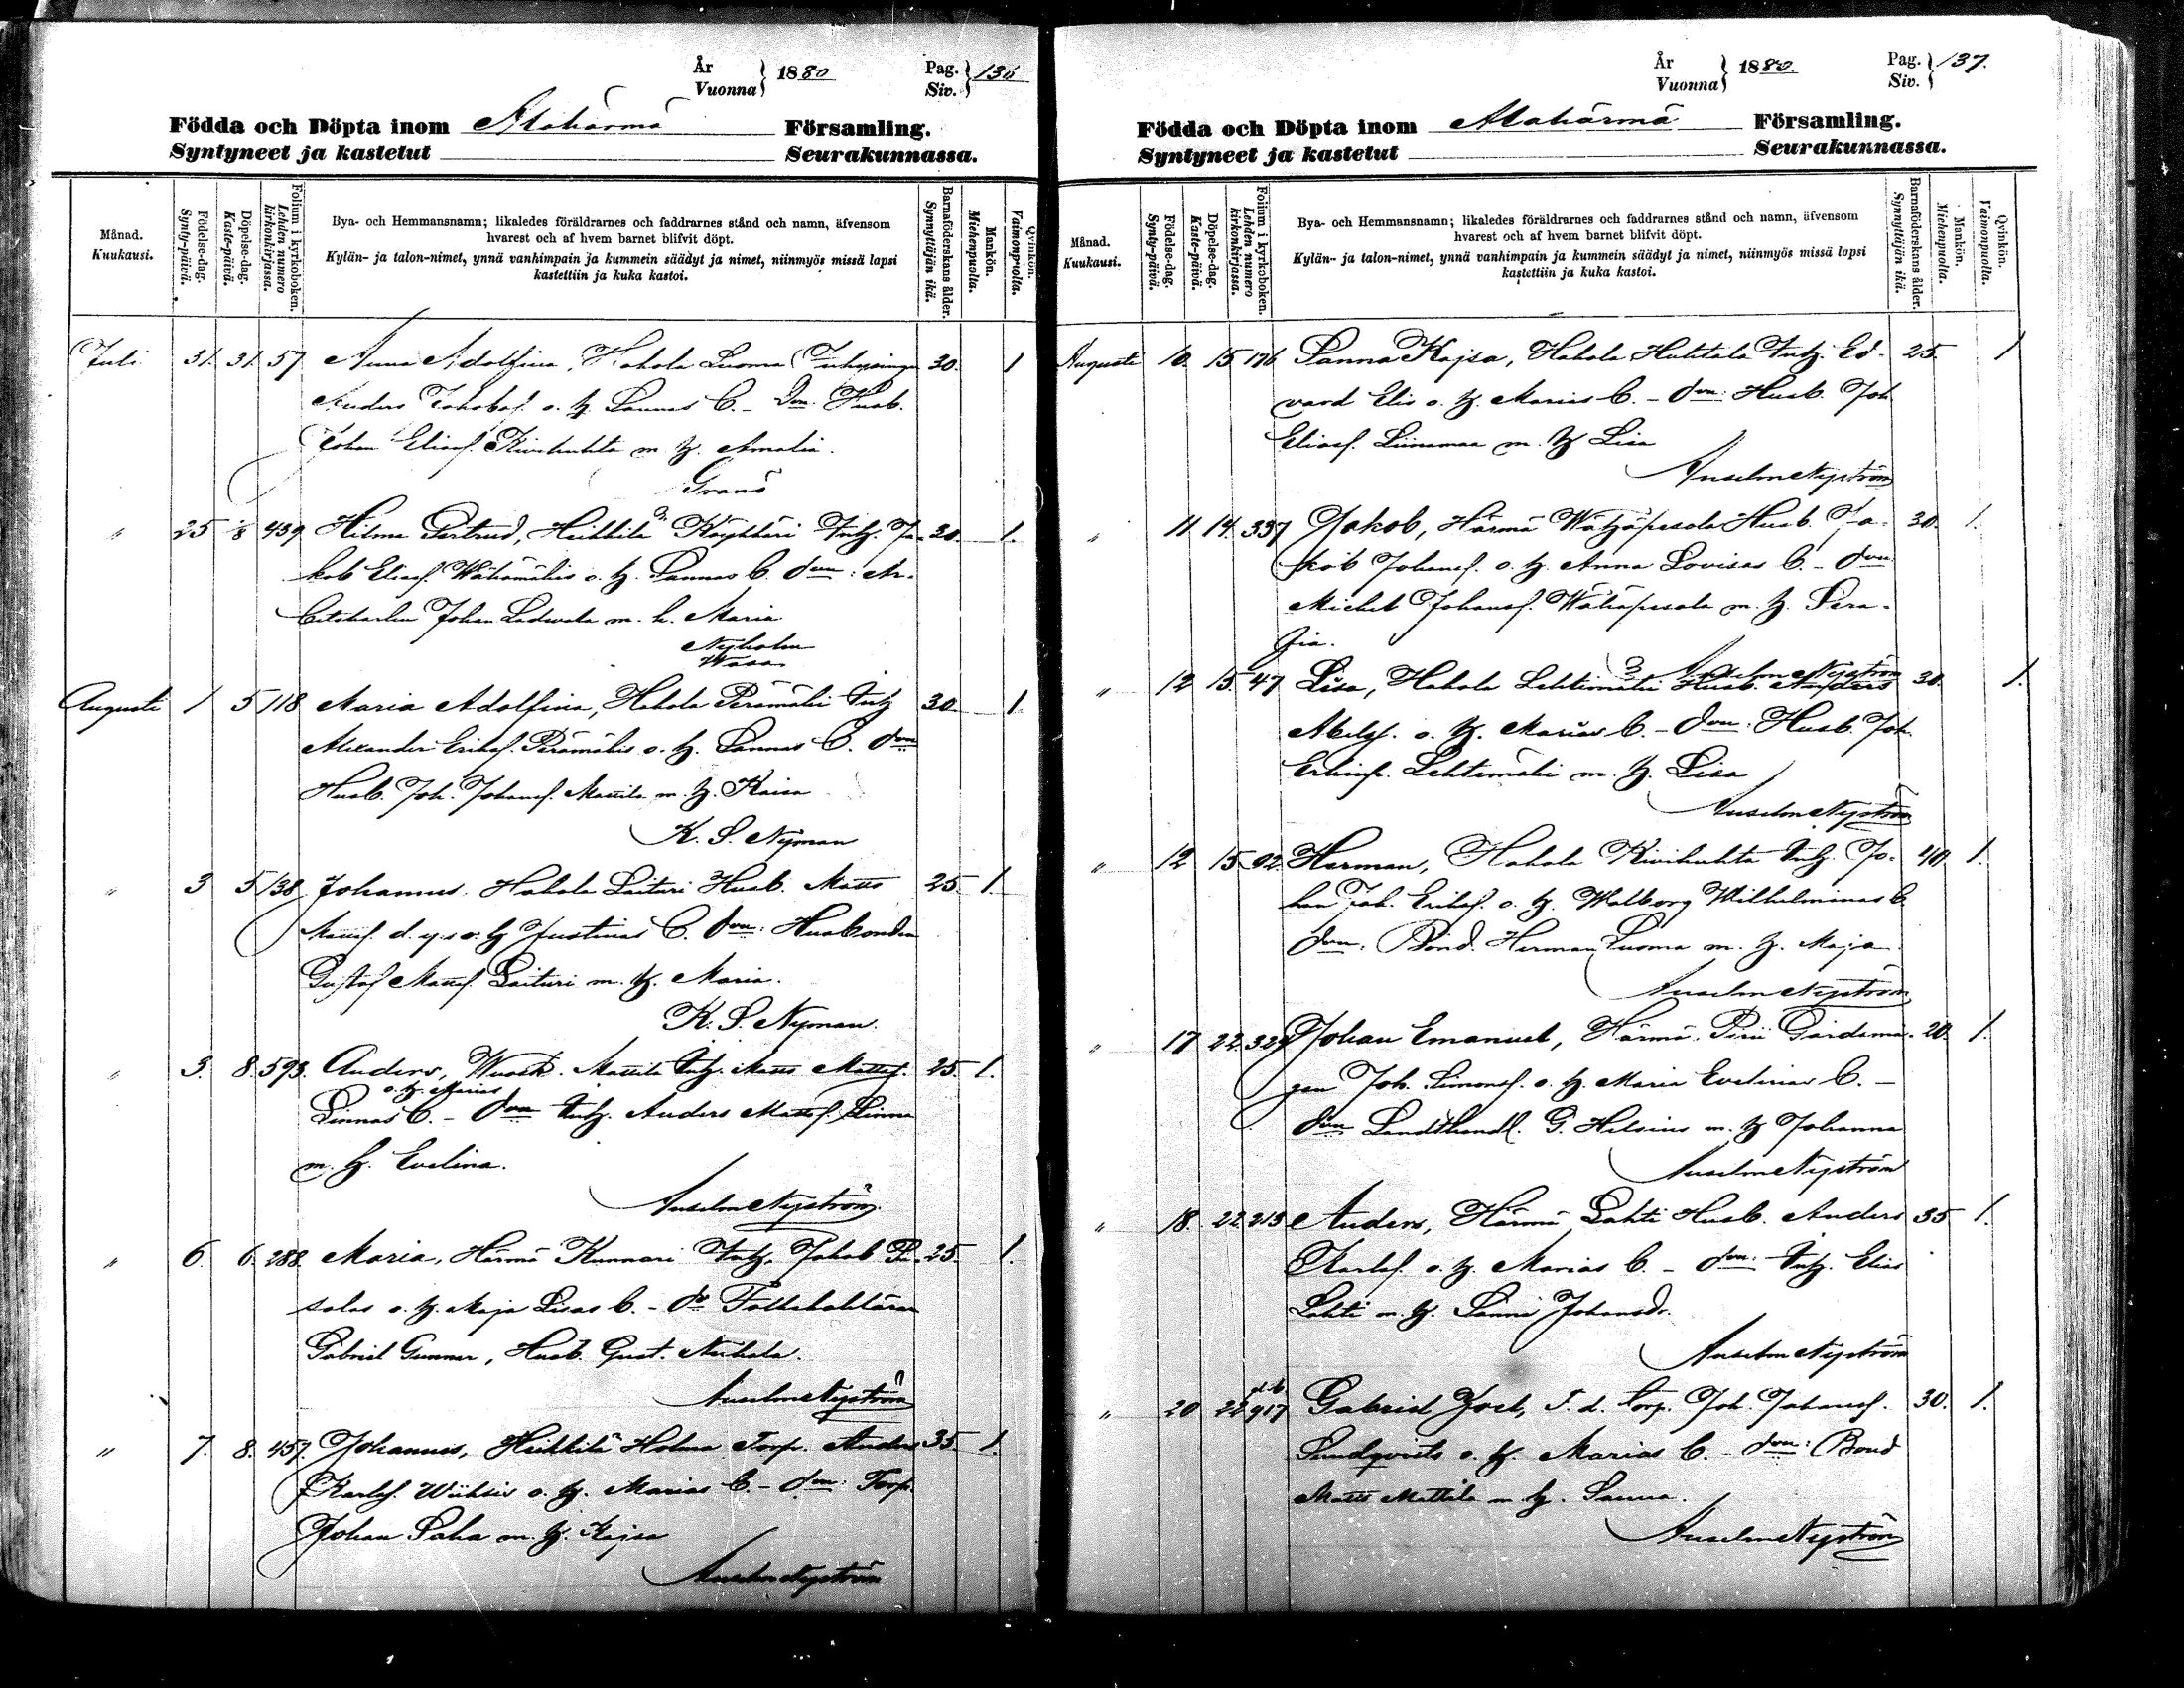 År
Vuonna } 1880
Pag.
Siv. } 136
Födda och Döpta inom Alahärmä Församling.
Syntyneet ja kastetut Seurakunnassa.
Månad.
Kuukausi.
Födelse-dag.
Synty-päivä.
Döpelse-dag.
Kaste-päivä.
Folium i kyrkoboken.
Lehden numero
kirkonkirjassa.
Bya- och Hemmansnamn; likaledes föräldrarnes och faddrarnes stånd och namn, äfvensom
hvarest och af hvem barnet blifvit döpt.
Kylän- ja talon-nimet, ynnä vanhimpain ja kummein säädyt ja nimet, niinmyös missä lapsi
kastettiin ja kuka kastoi.
Barnaföderskans ålder.
Synnyttäjän ikä.
Mankön.
Miehenpuolta.
Qvinkön.
Vaimonpuolta.
Juli 31. 31. 57 Anna Adolfina, Hakola Luoma 30. 1
Anders Jakobsf. o. h. Sannas b. - dom: Husb.
Johan Eliasf. Kivihuhta m. h. Amalia.
Granö
" 25 8 439 Hilma Gertrud, Heikkilä Köykkäri Inh. Ja- 30. 1.
kob Eliasf. Wähämäkis o. h. Sannas b. dom: Ar-
Johan m. h. Maria
Nyholm
Wasa
Augusti 1 5 118 Maria Adolfina, Hakola Perämäki Inh 30. 1
Alexander Eriksf. Perämäkis o. h. Sannas b. dom
Husb. Joh. Johansf. Mattila m. h. Kaisa
K. S. Nyman
" 3 5 138 Johannes. Hakola Laituri Husb. Matts 25 1.
Mattsf. d. y:s o. h Justinas b. dom: Husbonden
Gustaf Mattsf. Laituri m. h. Maria.
K. S. Nyman.
" 3. 8. 593. Anders, Mattila Inh. Matts Mattsf. 25. 1.
o. h. Marias
Linnas b. - dom Inh. Anders Mattsf. Linna
m. h. Evelina.
Anselm Nyström
" 6. 6. 288. Maria, Härmä Kunnari Inh. Jakob Pe- 25. 1.
solas o. h. Maja Lisas b. - do Folkskolläraren
Gabriel Gunnar, Husb. Gust.
Anselm Nyström
" 7. 8. 457. Johannes, Heikkilä Holma Torp. Anders 35. 1.
Karlsf. o. h. Marias b. - dom: Torp.
Johan Saha m. h. Kajsa
Anselm Nyström
År
Vuonna } 1880
Pag.
Siv. } 137.
Födda och Döpta inom Alahärmä Församling.
Syntyneet ja kastetut Seurakunnassa.
Månad.
Kuukausi.
Födelse-dag.
Synty-päivä.
Döpelse-dag.
Kaste-päivä.
Folium i kyrkoboken.
Lehden numero
kirkonkirjassa.
Bya- och Hemmansnamn; likaledes föräldrarnes och faddrarnes stånd och namn, äfvensom
hvarest och af hvem barnet blifvit döpt.
Kylän- ja talon-nimet, ynnä vanhimpain ja kummein säädyt ja nimet, niinmyös missä lapsi
kastettiin ja kuka kastoi.
Barnaföderskans ålder.
Synnyttäjän ikä.
Mankön.
Miehenpuolta.
Qvinkön.
Vaimonpuolta.
Augusti 10. 15 176 Sanna Kajsa, Hakola Huhtala Inh. Ed- 25. 1
vard Elis o. h. Marias b. - dom: Husb. Joh
Eliasf. Liinamaa m. h Lisa
Anselm Nyström
" 11 14. 337 Jakob, Härmä Wähäpesola Husb. Ja- 30. 1.
kob Johansf. o. h. Anna Lovisas b. - dom
Michel Johansf. Wähäpesola m. h. Sera-
fia.
Anselm Nyström
" 12 15. 47 Lisa, Hakola Lehtimäki Husb. Anders 30. 1.
Abelsf. o. h. Marias b. - dom: Husb. Joh.
Eriksf. Lehtimäki m. h. Lisa
Anselm Nyström
" 12 15 92. Herman, Hakola Kivihuhta Inh. Jo- 40. 1.
han Joh. Eriksf. o. h. Walborg Wilhelminas b
dom: Bond. Herman Luoma m. h. Maja
Anselm Nyström
" 17 22. 329 Johan Emanuel, Härmä Gårdsma- 20. 1.
gen Joh. Simonsf. o. h. Maria Evelinas b. -
dom Landthandl. G. Helsius m. h Johanna
Anselm Nyström
" 18. 22. 213 Anders, Härmä Lahti Husb. Anders 35 1.
Karlsf. o. h. Marias b. - dom: Inh. Elias
Lahti m. h. Sanna Johansdr.
Anselm Nyström
" 20 22 917 Gabriel Joel, T. d. torp. Joh. Johansf. 30. 1.
Sundqvists o. h. Marias b. - dom: Bond
Matts Mattila m. h. Sanna.
Anselm Nyström